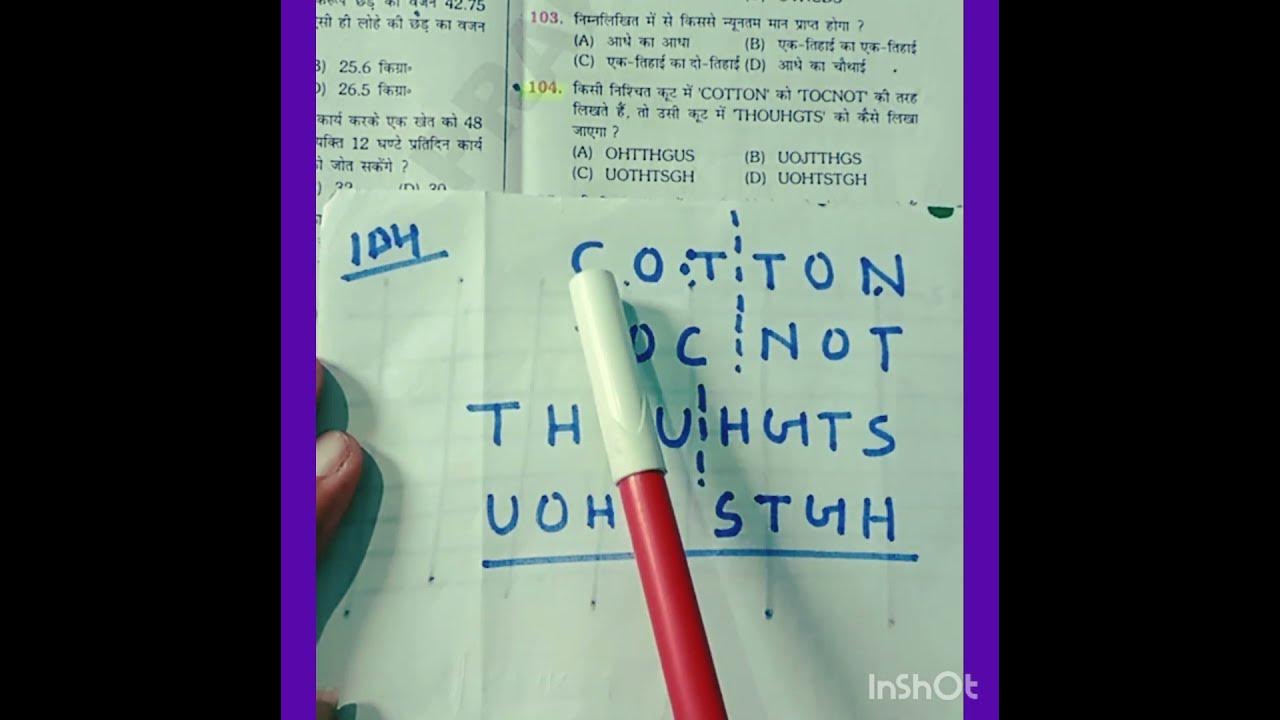 वजन 42.75
ही लोहे की छड़ का वजन
25.6 किग्रा॰
26.5 किग्रा॰
कार्य करके एक खेत को 48
12 घण्टे प्रतिदिन कार्य
जोत सकेंगे ?
103. निम्नलिखित में से किससे न्यूनतम मान प्राप्त होगा ?
(A) आधे का आधा (B) एक-तिहाई का एक-तिहाई
(C) एक-तिहाई का दो-तिहाई (D) आधे का चौथाई
104. किसी निश्चित कूट में 'COTTON' को 'TOCNOT' की तरह
लिखते हैं, तो उसी कूट में 'THOUHGTS' को कैसे लिखा
जाएगा ?
(A) OHTTHGUS (B) UOJTTHGS
(C) UOTHTSGH (D) UOHTSTGH
104
C O T T O N
O C N O T
T H U H G T S
U O H S T G H
InShOt